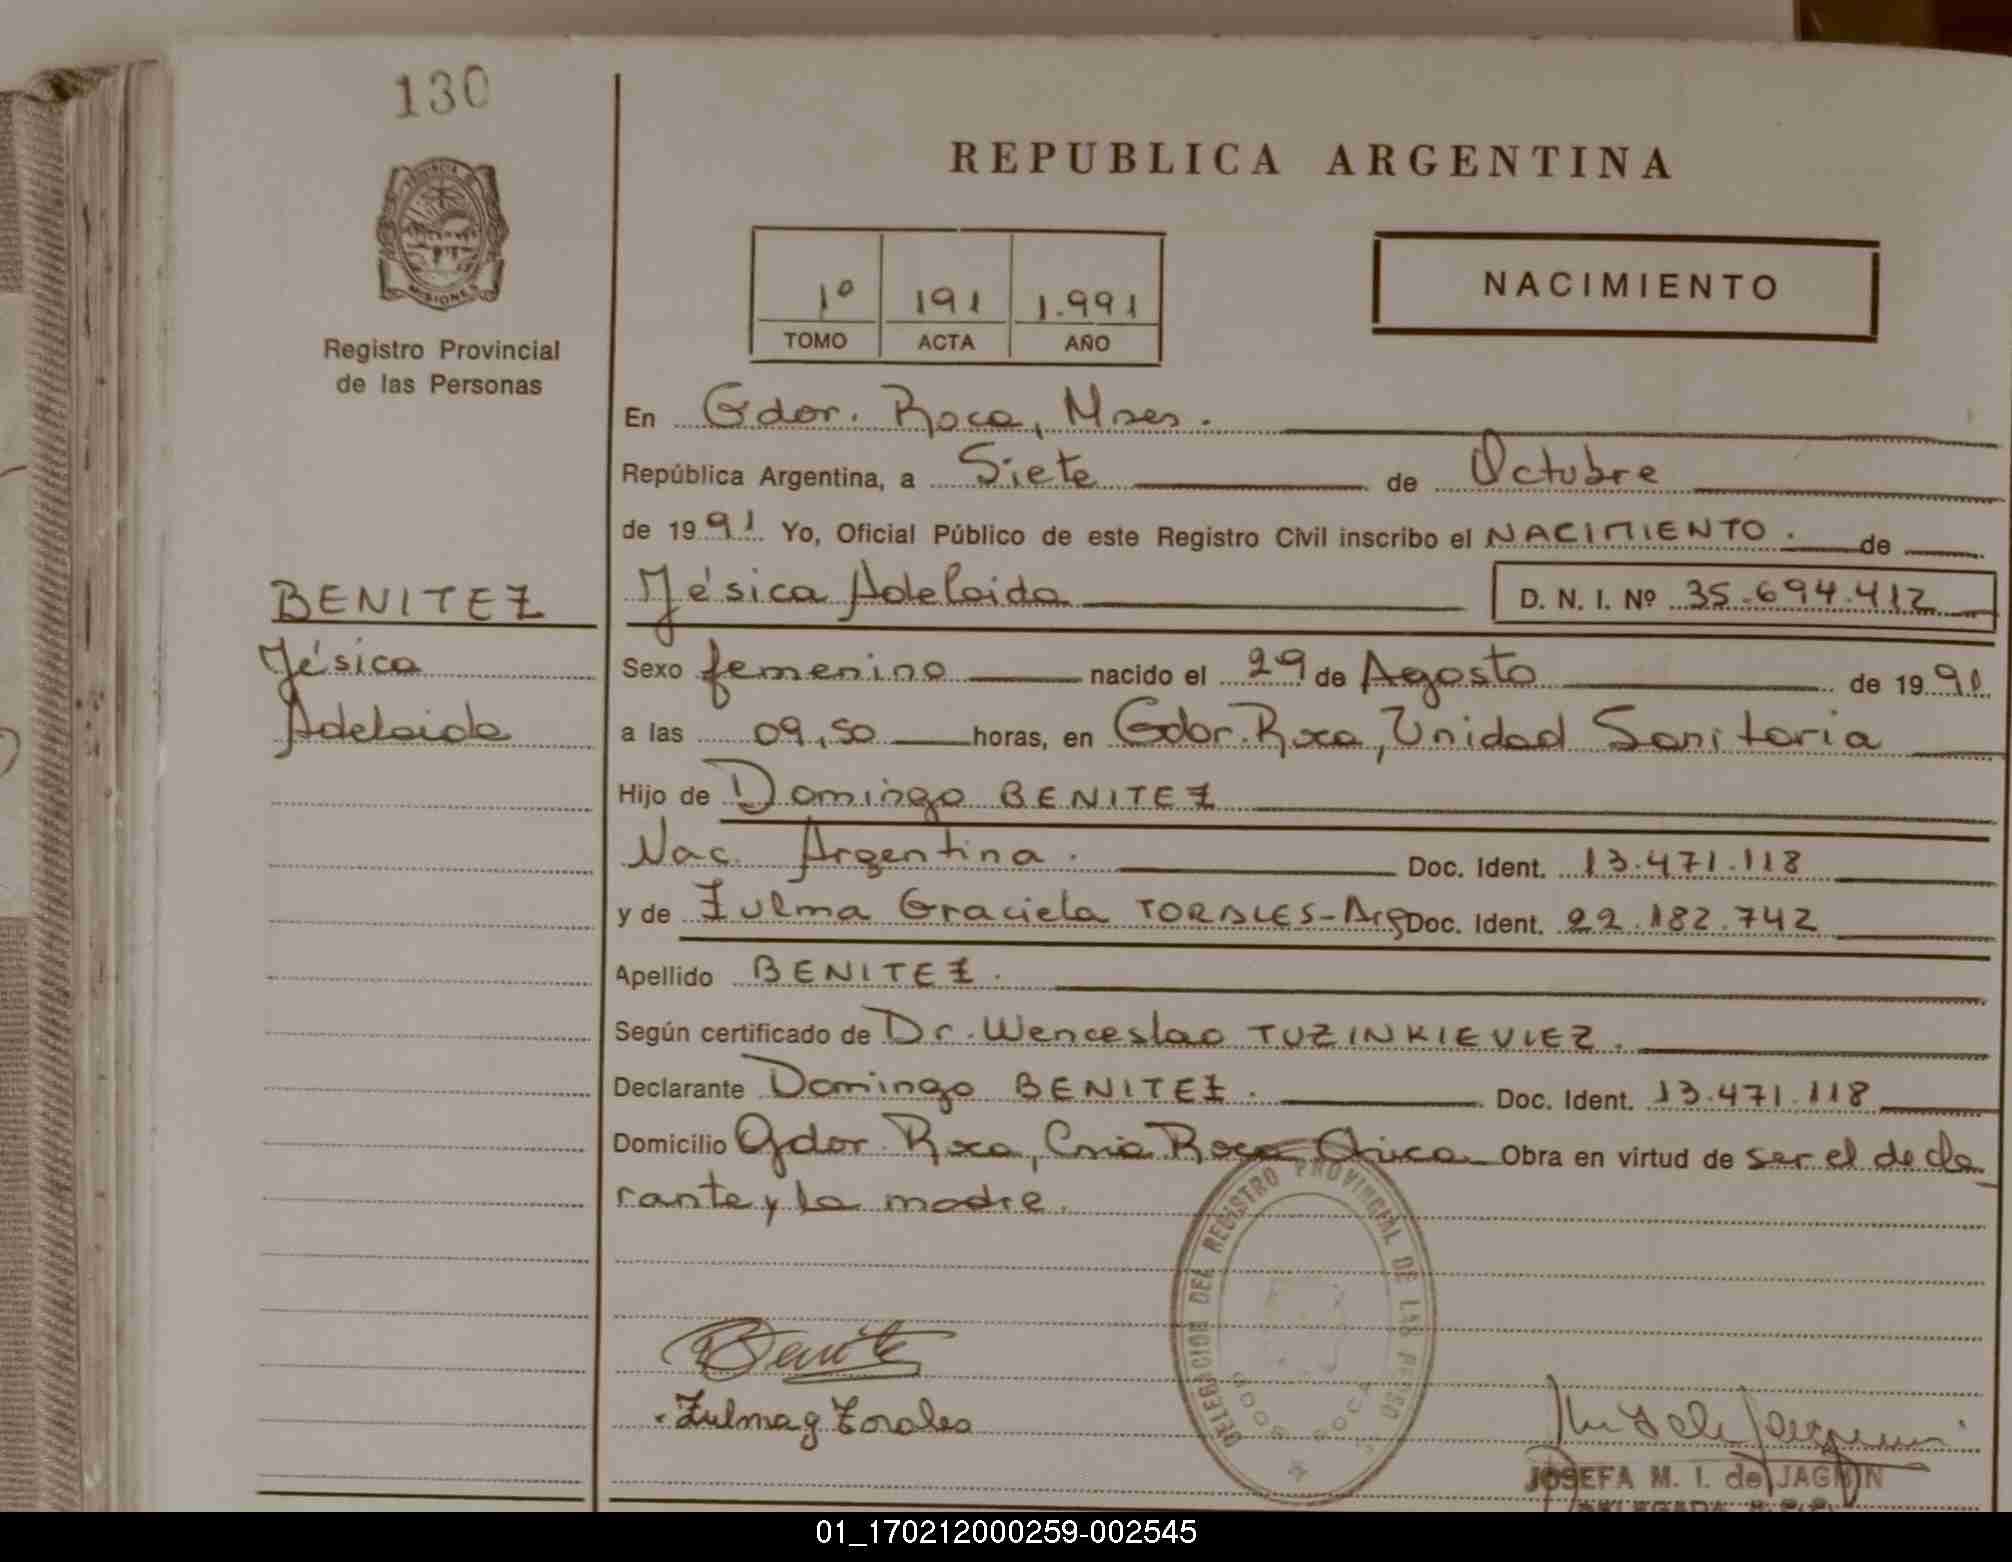 130
REPUBLICA ARGENTINA
PROVINCIA
MISIONES
Registro Provincial
de las Personas
1º 191 1.991
TOMO ACTA AÑO
NACIMIENTO
En Gdor. Roca, Mnes.
República Argentina, a Siete de Octubre
de 1991 Yo, Oficial Público de este Registro Civil inscribo el NACIMIENTO. de
BENITEZ
Jésica
Adelaida
Jésica Adelaida D. N. I. Nº 35.694.412
Sexo femenino nacido el 29 de Agosto de 1991
a las 09,50 horas, en Gdor. Roca, Unidad Sanitaria
Hijo de Domingo BENITEZ
Nac. Argentina. Doc. Ident. 13.471.118
y de Zulma Graciela TORALES-Arg Doc. Ident. 22.182.742
Apellido BENITEZ.
Según certificado de Dr. Wenceslao TUZINKIEVIEZ.
Declarante Domingo BENITEZ. Doc. Ident. 13.471.118
Domicilio Gdor. Roca, Cnia Roca Chica Obra en virtud de ser el decla
rante y la madre.
DELEGACION DEL REGISTRO PROVINCIAL DE LAS PERSO
GDOR ROCA
Benitez
Zulma g Torales
JOSEFA M. I. de JAGMIN
DELEGADA
01_170212000259-002545